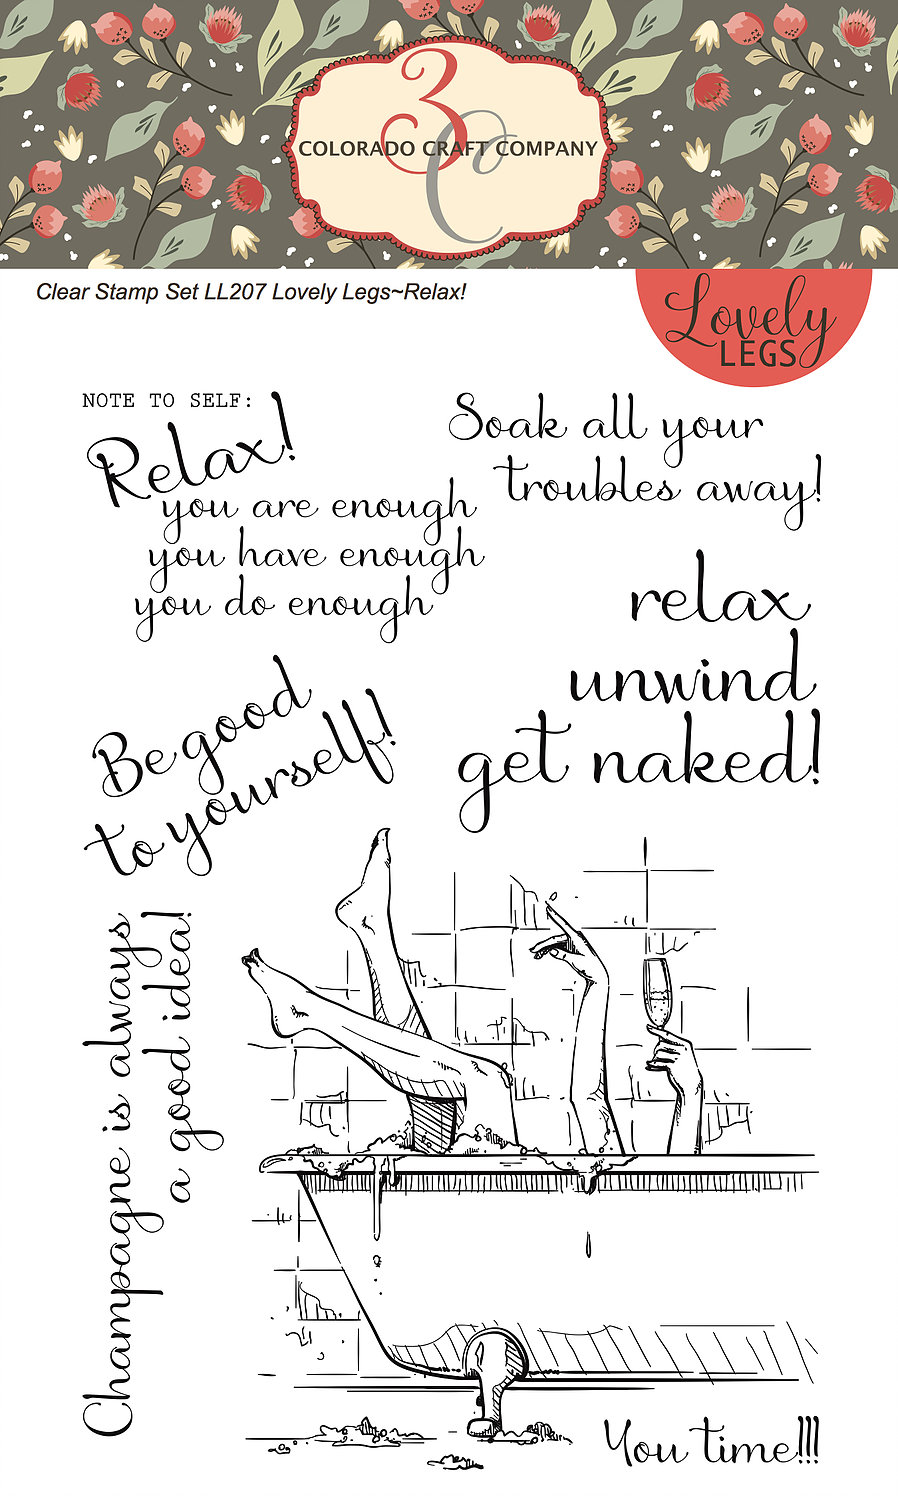 3C
COLORADO CRAFT COMPANY
Clear Stamp Set LL207 Lovely Legs~Relax!
Lovely
LEGS
NOTE TO SELF:
Relax!
you are enough
you have enough
you do enough
Soak all your
troubles away!
relax
unwind
get naked!
Be good
to yourself!
Champagne is always
a good idea!
You time!!!